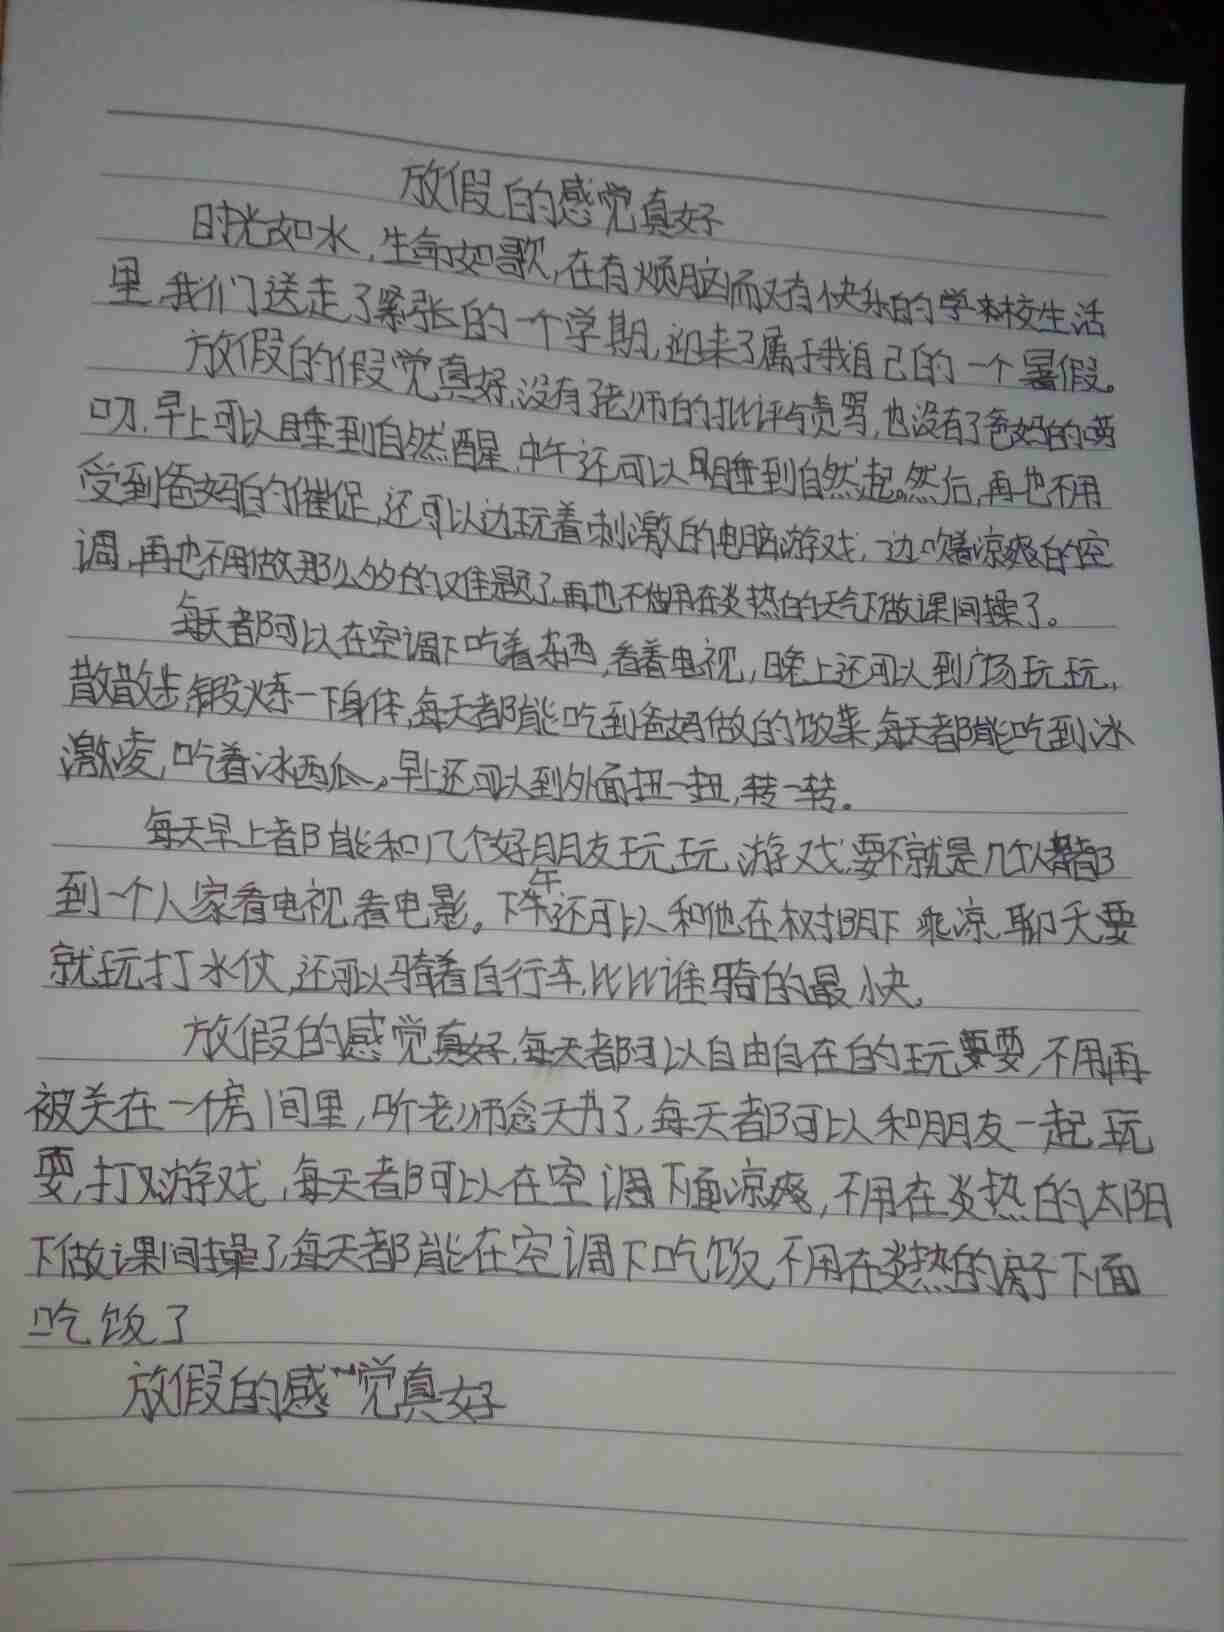 放假的感觉真好
时光如水,生命如歌,在有烦脑而又有快乐的学校生活
里,我们送走了紧张的一个学期,迎来了属于我自己的一个暑假。
放假的假觉真好,没有了老师的批评与责骂,也没有了爸妈的
叨,早上可以睡到自然醒,中午还可以睡到自然起。然后,再也不用
受到爸妈的催促,还可以边玩着刺激的电脑游戏,一边吹着凉爽的空
调,再也不用做那么多的难题了,再也不用在炎热的天气下做课间操了。
每天都可以在空调下吃着东西,看着电视,晚上还可以到广场玩玩,
散散步,锻炼一下身体,每天都能吃到爸妈做的饭菜,每天都能吃到冰
激凌,吃着冰西瓜,早上还可以到外面扭一扭,转一转。
每天早上都能和几个好朋友玩玩游戏,要不就是几个人都
到一个人家看电视,看电影。下午还可以和他在树阴下乘凉,聊天要
就玩打水仗,还可以骑着自行车,比比谁骑的最快。
放假的感觉真好,每天都可以自由自在的玩耍,不用再
被关在一个房间里,听老师念天书了,每天都可以和朋友一起玩
耍,打游戏,每天都可以在空调下面凉爽,不用在炎热的太阳
下做课间操了,每天都能在空调下吃饭,不用在炎热的房子下面
吃饭了
放假的感觉真好